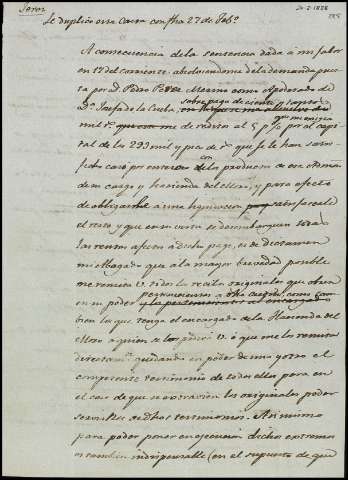 Jerez
24-2-1828
Se duplicó esta Carta con fha 27 de Feb.º
A consecuencia de la sentencia dada á mi fabor
en 17 del corriente absolviendome de la demanda pues
ta por D. Pedro Perez Moreno como Apoderado de
D.ª Josefa de la Cueba,
sobre pago de ciento y tantos
mil r.s de redito al 5 p% por el capi
tal de los 293 mil y pico de r.s que se le han satis
fecho casi por entero con los productos de esa
de su cargo y Hacienda del Moro, y para efecto
de obligarle á una liquidacion
el resto y que en su vista se desembarquen todas
las rentas afectas á dicho pago, es de dictamen
mi Abogado que á la mayor brevedad posible
me remita V. todos los recibos originales que obran
en su poder pertenecientes á dho credito, como tam
bien los que tenga el encargado de la Hacienda del
Moro á quien se los pedirá V. ó que me los remita
directam.te quedando en poder de uno y otro el
competente testimonio de todos ellos para en
el caso de que se extravien los originales poder
servirse de dhos testimonios. Asi mismo
para poder poner en ejecucion dichos extremos
es tambien indispensable (en el supuesto de que